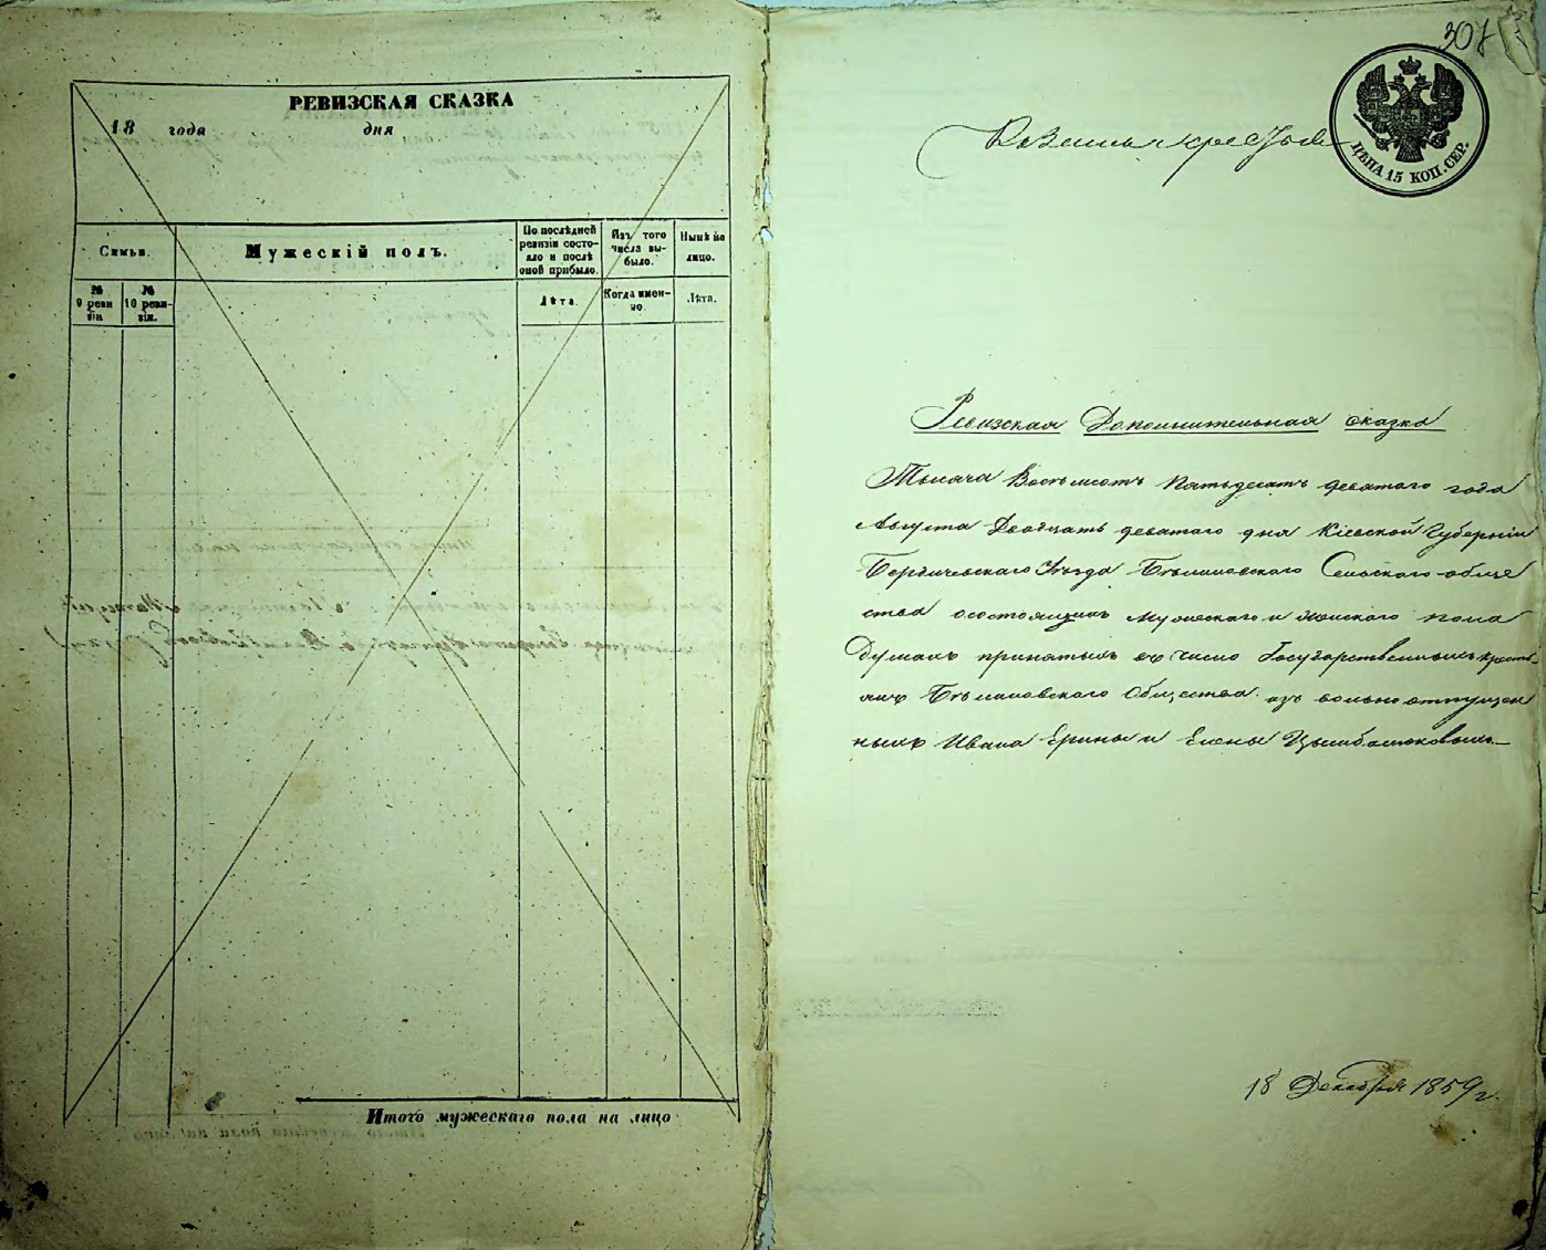 РЕВИЗСКАЯ СКАЗКА
18 года дня
Семьи.
Мужескій полъ.
По последней
ревизіи состо-
яло и послѣ
оной прибыло.
Изъ того
числа вы-
было.
Нынѣ на
лицо.
№
9 реви
зіи
№
10 реви-
зіи.
Лѣта.
Когда имен-
но.
Лѣта.
Итого мужескаго пола на лицо
307
ЦѢНА 15 КОП. СЕР.
Ревизская Дополнительная сказка
Тысяча Восъмсотъ Пятьдесятъ девятаго года
Августа Двадцать девятаго дня Кіевской Губерніи
Бердичевскаго Уѣзда Бѣлиловскаго Сельскаго обще
ства о состоящихъ Мужескаго и Женскаго пола
Душахъ принятыхъ въ число Государственныхъ кресть-
янъ Бѣлиловскаго Общества изъ вольноотпущен
ныхъ Ивана Ерины и Елены Цымбалюковыхъ
18 Декабря 1859 г.